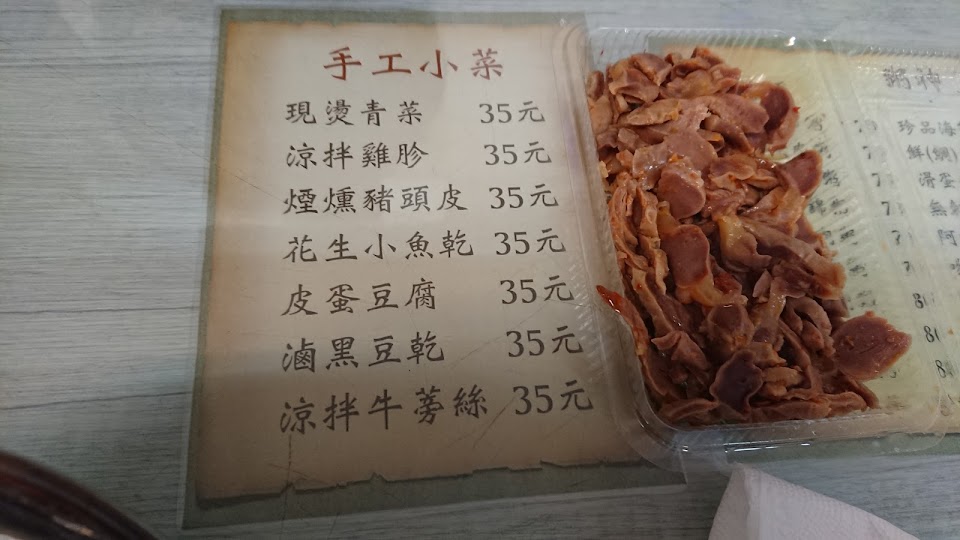 手工小菜
現燙青菜 35元
涼拌雞胗 35元
煙燻豬頭皮 35元
花生小魚乾 35元
皮蛋豆腐 35元
滷黑豆乾 35元
涼拌牛蒡絲 35元
粥神
珍品海
鮮(鯛)
滑蛋
無
阿